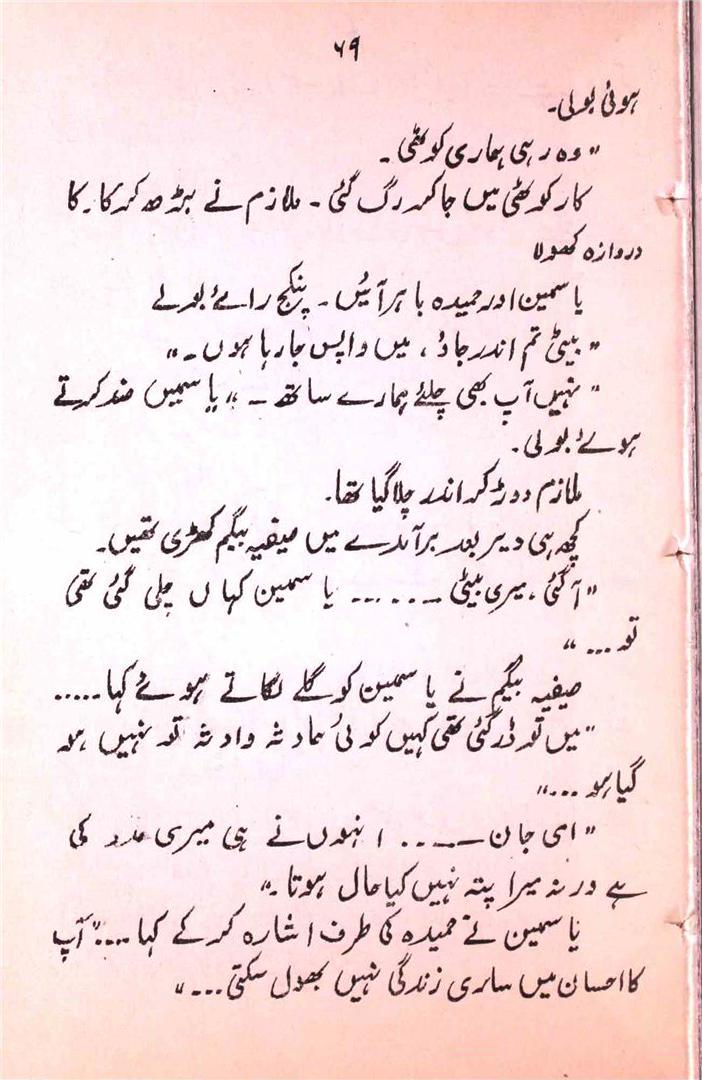 ۶۹
ہوئی بولی۔
"وہ رہی ہماری کوٹھی۔
کار کوٹھی میں جا کر رک گئی۔ ملازم نے بڑھ کر کا۔ کا
دروازہ کھولا
یاسمین اور حمیدہ باہر آئیں۔ پنکج رائے بولے
"بیٹی تم اندر جاؤ، میں واپس جا رہا ہوں۔"
"نہیں آپ بھی چلئے ہمارے ساتھ۔" یاسمین ضد کرتے
ہوئے بولی۔
ملازم دوڑ کر اندر چلا گیا تھا۔
کچھ ہی دیر بعد برآمدے میں صیفیہ بیگم کھڑی تھیں۔
"آ گئی، میری بیٹی ..... یاسمین کہاں چلی گئی تھی
تو..."
صیفیہ بیگم نے یاسمین کو گلے لگاتے ہوئے کہا.....
"میں تو ڈر گئی تھی کہیں کوئی حادثہ وادثہ تو نہیں ہو
گیا ہو..."
"امی جان ..... انہوں نے ہی میری مدد کی
ہے ورنہ میرا پتہ نہیں کیا حال ہوتا۔"
یاسمین نے حمیدہ کی طرف اشارہ کر کے کہا..." آپ
کا احسان میں ساری زندگی نہیں بھول سکتی..."